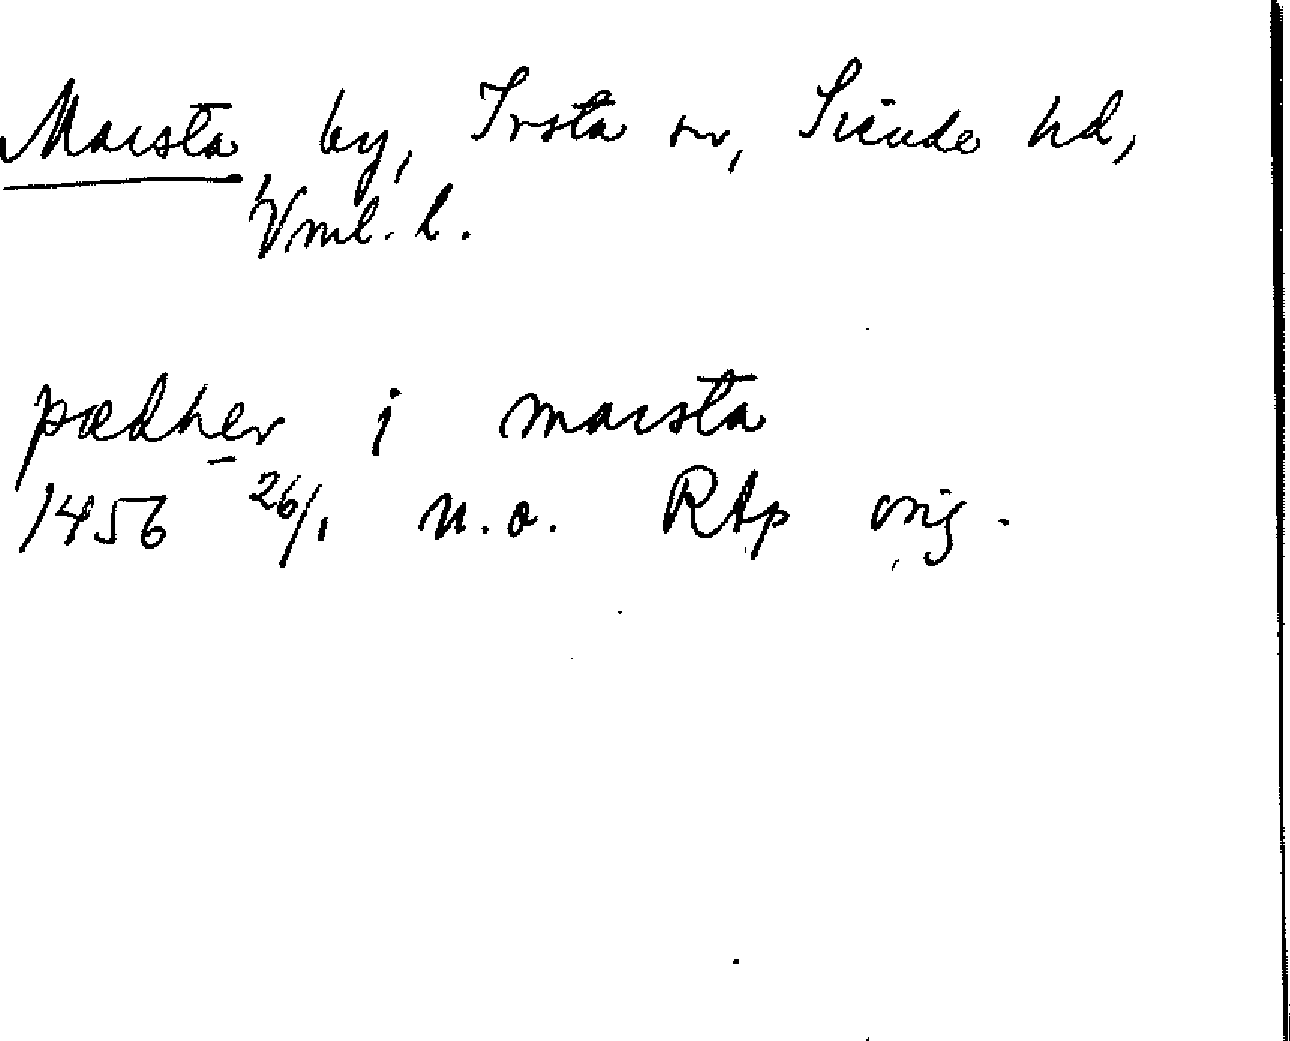 Marsta by, Irsta sn, Siende hd,
Vml. l.
pædher j marsta
1456 26/1 n.o. RAp orig.